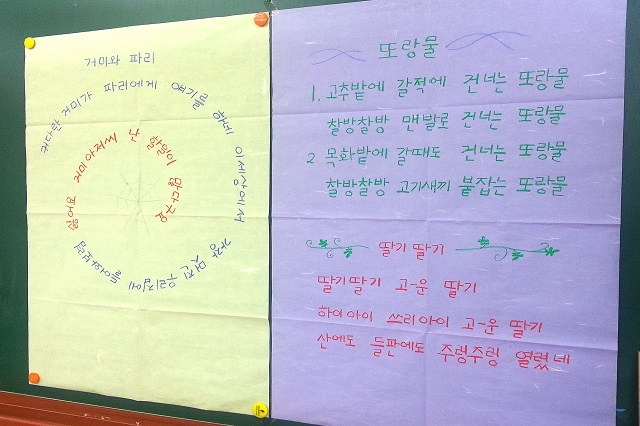 거미와 파리
커다란 거미가 파리에게 얘기를 하네 이세상에서 가장 멋진 우리집에 들어와보렴
거미아저씨 난 할일이 많다구요 싫어요
또랑물
1. 고추밭에 갈적에 건너는 또랑물
찰방찰방 맨발로 건너는 또랑물
2 목화밭에 갈때도 건너는 또랑물
찰방찰방 고기새끼 붙잡는 또랑물
딸기 딸기
딸기딸기 고-운 딸기
하이아이 쓰리아이 고-운 딸기
산에도 들판에도 주렁주렁 열렸네